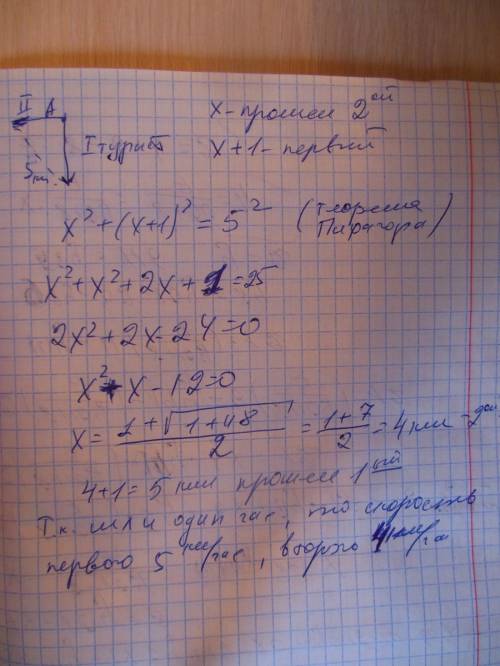 II A
x - прошел 2ой
I турист
x+1 - первый
5 км
x² + (x+1)² = 5² (теорема Пифагора)
x² + x² + 2x + 1 = 25
2x² + 2x - 24 = 0
x² + x - 12 = 0
x = 1+√1+48 / 2 = 1+7 / 2 = 4 км - 2ой
4+1 = 5 км прошел 1ый
Т.к. шли один час, то скорость
первого 5 км/час, второго 4 км/час